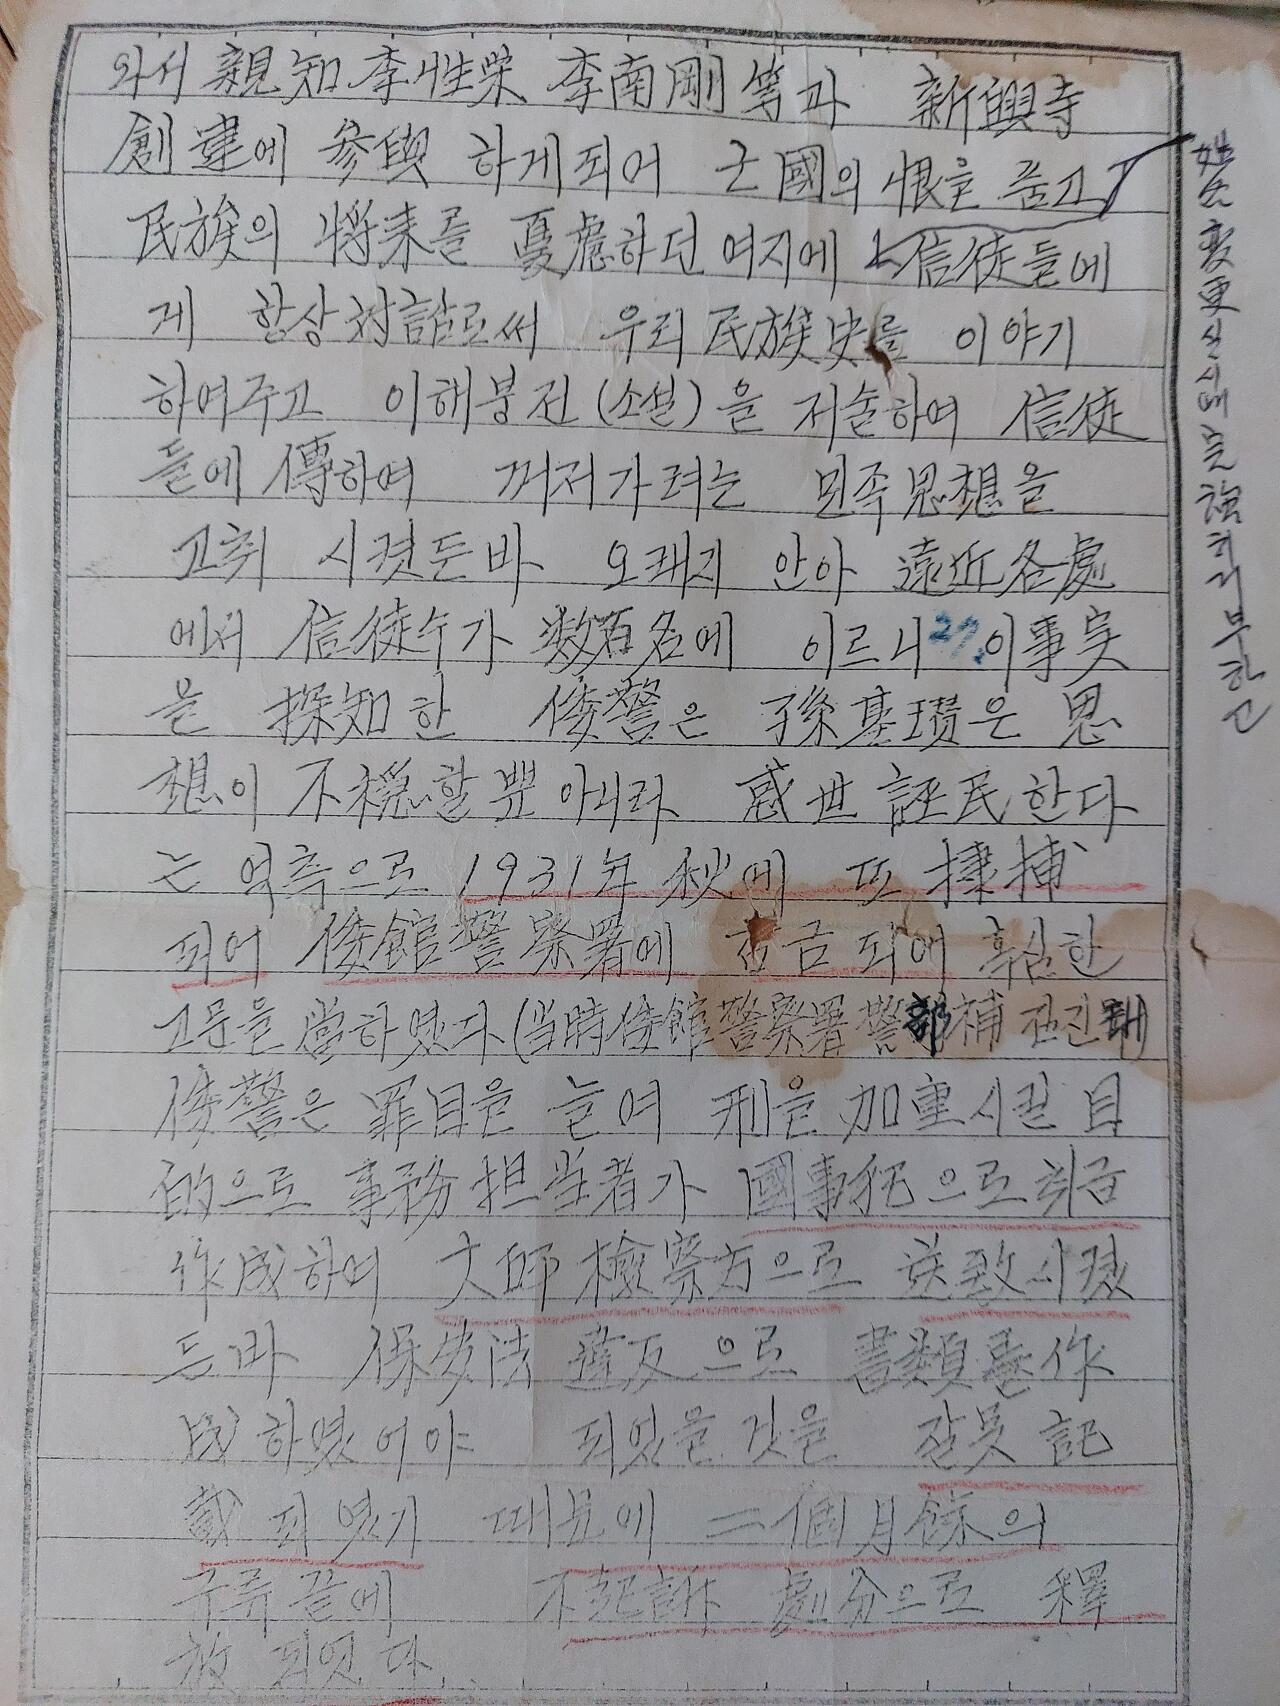 와서 親知 李性栄 李南剛 等과 新興寺
創建에 參與 하게되어 亡國의 恨을 품고
民族의 將來를 憂慮하던 여지에 信徒들에
게 항상 対話로써 우리 民族史를 이야기
하여주고 이해붕전(소설)을 저술하여 信徒
들에 傳하여 꺼저가려는 민족思想을
고취 시켯든바 오래지 안아 遠近各處
에서 信徒수가 数百名에 이르니 27. 이事実
을 探知한 倭警은 孫基瓚은 思
想이 不穏할뿐아니라 惑世誣民한다
는 억측으로 1931年 秋에 또 逮捕
되어 倭館警察署에 구금되에 혹심한
고문을 當하였다(当時倭館警察署警部補 권진태)
倭警은 罪目을 늘여 刑을 加重시킬 目
的으로 事務担当者가 國事犯으로 취급
作成하여 大邱檢察方으로 送致시켯
든바 保安法 違反으로 書類를 作
成하였어야 되었을 것을 잘못 記
載되였기 때문에 二個月餘의
구류끝에 不起訴 處分으로 釋
放되었다
变更